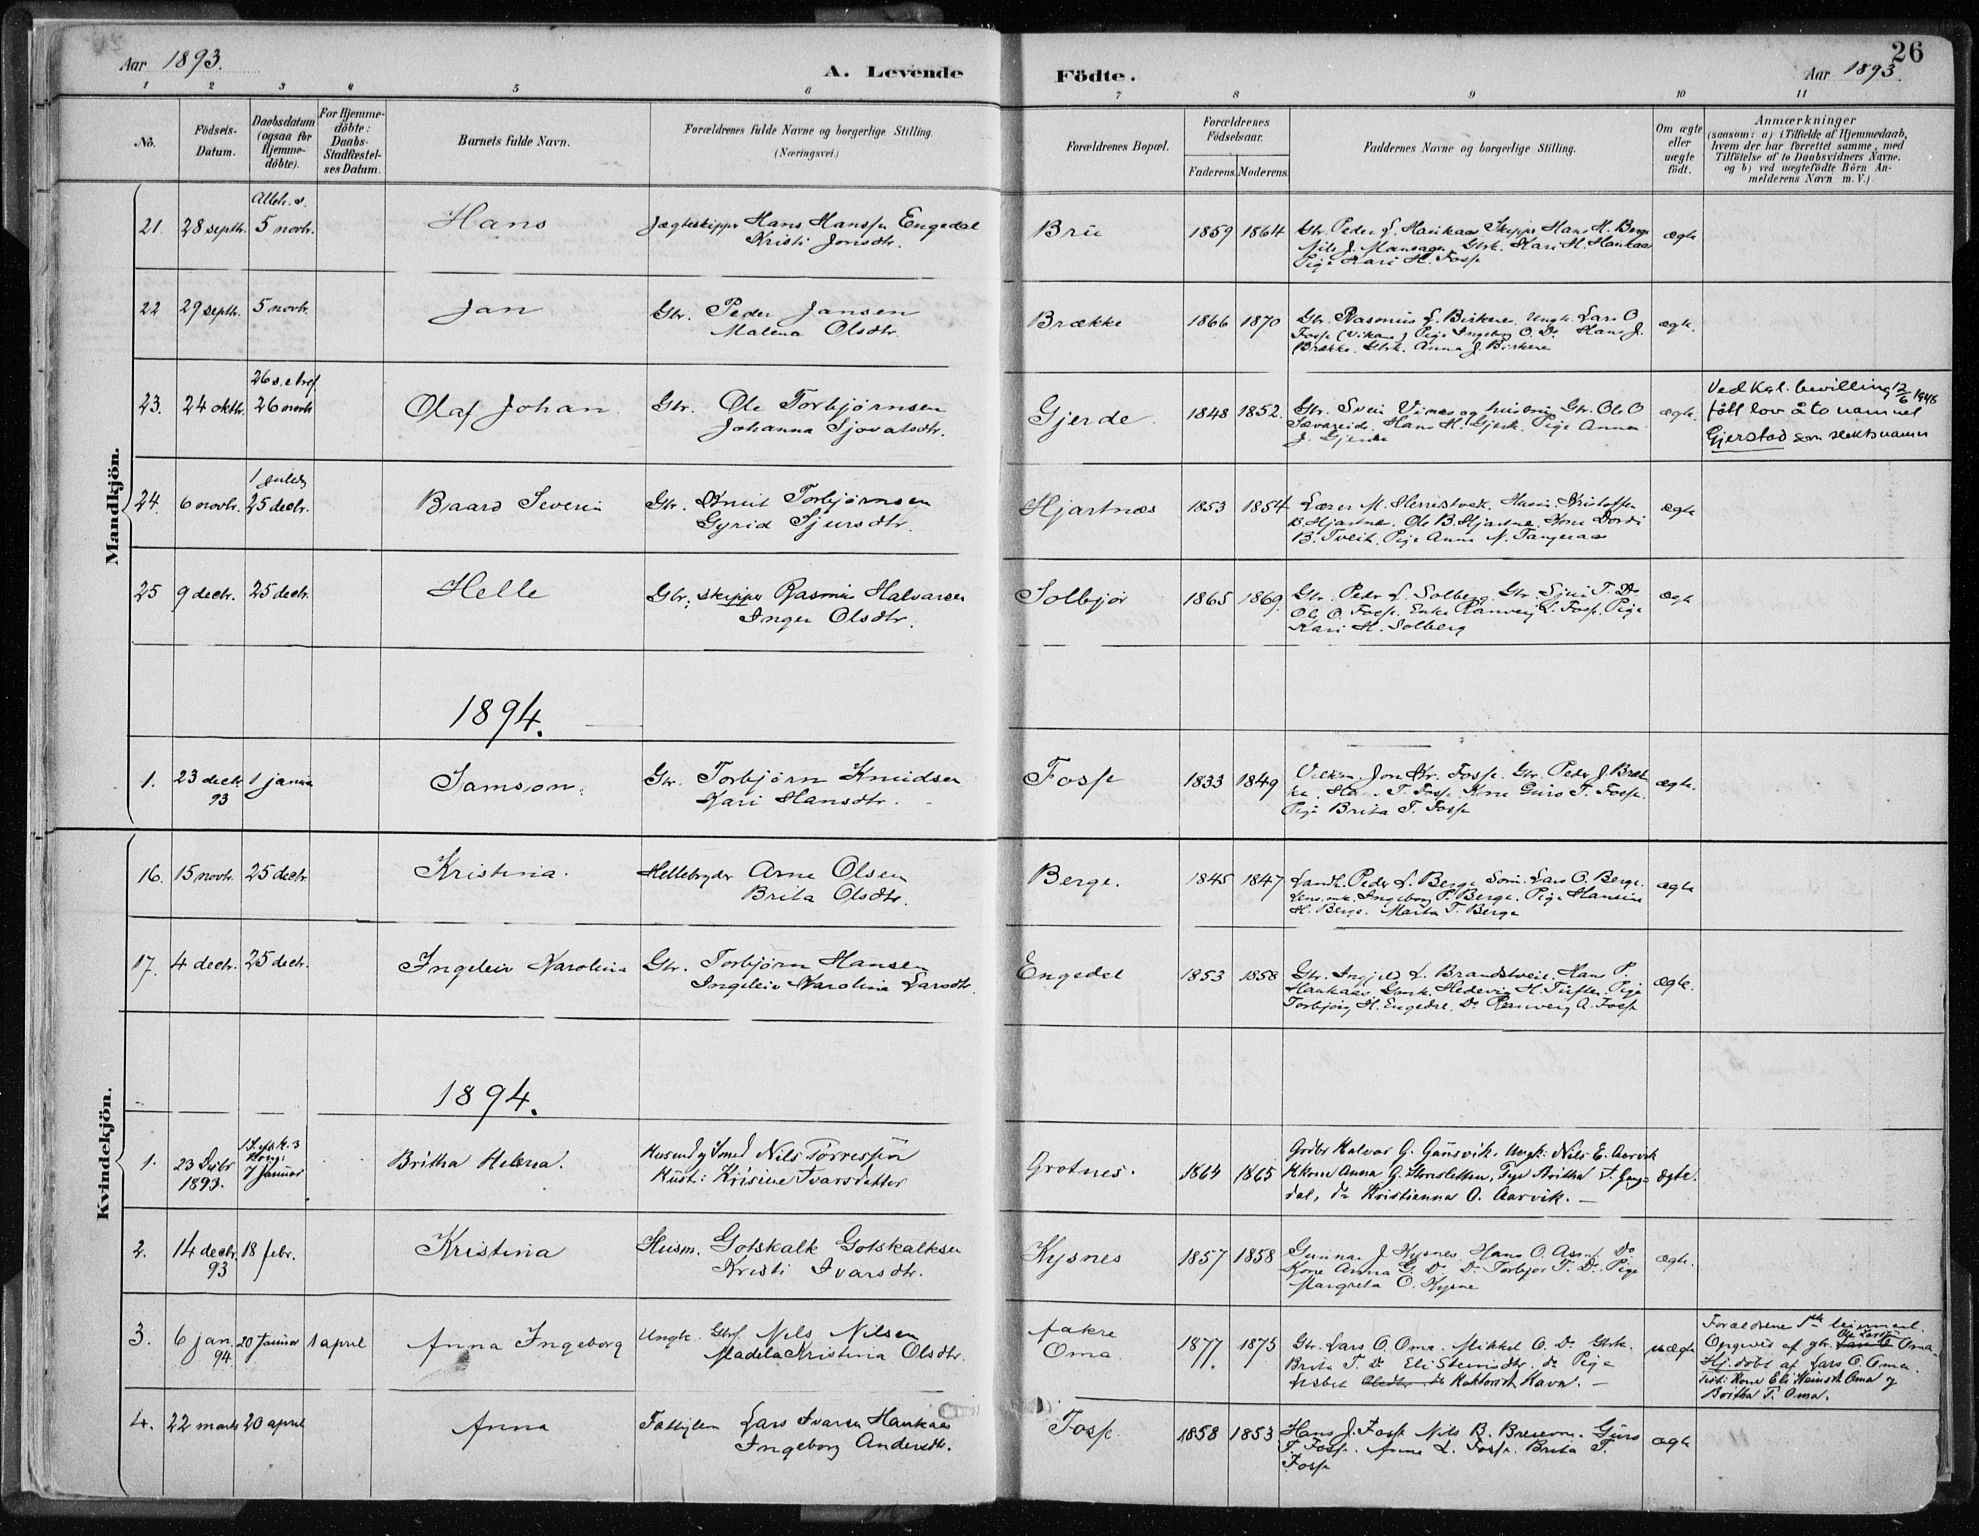 Aar 1893.
A. Levende Födte.
Aar 1893.
26
1 2 3 4 5 6 7 8 9 10 11
No.
Födsels-Datum.
Daabsdatum (ogsaa for Hjemme-döbte).
For Hjemme-döbte: Daabs-Stadfæstel-ses Datum.
Barnets fulde Navn.
Forældrenes fulde Navne og borgerlige Stilling.
(Næringsvei.)
Forældrenes Bopæl.
Forældrenes Födselsaar.
Faderens. Moderens.
Faddernes Navne og borgerlige Stilling.
Om ægte eller uægte födt.
Anmærkninger
(saasom: a) i Tilfælde af Hjemmedaab,
hvem der har forrettet samme, med
Tilföielse af to Daabsvidners Navne,
og b) ved uægtefödte Börn An-
melderens Navn m. V.)
Mandkjön.
21. 28 septbr. 5 novbr. Hans Jægteskipper Hans Hanssen Engedal
Kristi Jonsdtr.
Brü 1859 1864 Gbr. Peder L. Haukaas Skipper Hans H. Berge
Nils J. Mansager Gbrk. Kari H. Haukaas
Pige Kari H. Fosse ægte
22 29 septbr. 5 novbr. Jan Gbr. Peder Jansen
Malena Olsdtr.
Brække 1866 1870 Gbr. Rasmus L. Birkene Ungk. Lars O
Fosse (Vikane) Pige Ingeborg O. Do Hans J.
Brække. Gbrk. Anna J. Birkene ægte.
23. 24 oktbr. 26 novbr Olaf Johan Gbr. Ole Torbjørnsen
Johanna Sjovatsdtr.
Gjerde 1848 1852. Gbr. Svein Vinæs og hustru Gbr. Ole O
Sævareide. Hans H. Gjerde. Pige Anna
J. Gjerde ægte.
Ved kgl. bevilling 12/6 1946
fått lov å ta navnet
Gjerstad som slektsnavn
24. 6 novbr. 25 decbr. Baard Severin Gbr. Knut Torbjørnsen
Gyrid Sjursdtr.
Hjartnæs 1853 1854 Lærer M. Herredstveit.
B. Hjartnæ. Ole B. Hjartnæ. Kone Dordi
B. Tveit. Pige Anna N. Tangeraas ægte
25 9 decbr. 25 decbr. Helle Gbr. skipper Rasmus Halvarsen
Inger Olsdtr.
Solbjør 1865 1869. Gbr. Peder L. Solberg. Gbr. Sjur T. Do
Ole O. Fosse. Enke Ranveig L. Fosse. Pige
Kari H. Solberg ægte
1894.
1. 23 decbr 93 1 januar Samson. Gbr. Torbjørn Knudsen
Kari Hansdtr.
Fosse 1833 1849 Jon Kr. Fosse. Gbr. Peder J. Bræk
ke. T. Fosse. Kone Guro T. Fosse.
Pige Brita T. Fosse ægte.
Kvindekjön.
16. 15 novbr. 25 decbr Kristina. Hellebryder Arne Olsen
Brita Olsdtr.
Berge. 1845 1847 Landh. Peder L. Berge Lars O. Berge.
Ingeborg P. Berge. Pige Hansine
H. Berge. Marta T. Berge ægte
17. 4 decbr. 25 decbr. Ingeleiv Karolina Gbr. Torbjørn Hansen
Ingeleiv Karolina Larsdtr.
Engedal 1853 1858 Gbr. Ingjeld L. Brandstveit. Hans P.
Haukaas Gbrk. Hedevig H. Tufte. Pige
Torbjörg H. Engedal. Do Ranveig A. Fosse ægte.
1894.
1. 23 Decbr 1893. 7 Januar Britha Helena. Husmd og Smed Nils Tørresson
Hust: Kristine Ivarsdatter
Grotnes. 1864 1865 Grdbr Halvar G. Gåusvik. Ungk: Nils E. Aarvik
Kkone Anna G. Storesletten, Pige Britha
dal, do Kristianna O. Aarvik. ægte.
2. 14 decbr. 93 18 febr. Kristina Husm. Gotskalk Gotskalksen
Kristi Ivarsdtr.
Kysnes 1857 1858 Gunnar J. Kysnes Hans O. Do
Kone Anna G. Do Do Torbjor T. Do. Pige
Margreta O. Kysne ægte.
3. 6 jan. 94 20 Januar 1 april Anna Ingeborg Ungk. Gbrs. Nils Nilsen
Madela Kristina Olsdtr.
Oma 1877. 1875 Gbr. Lars O. Oma. Mikkel O. Do. Gbrk.
Brita T. Do Eli Steinsdtr. do Pige
Lisbet Havn. uægte
Forældrene
Opgived af gbr. Ole Larss. Oma.
Hj. döbt af Lars O. Oma.
Test: Kone Eli Steinsdt Oma og
Britha T. Oma.
4. 22 marts 20 april Anna Lars Ivarsen Haukaas
Ingeborg Andersdtr.
Fosse. 1858 1853 Hans J. Fosse Nils B. Guro
T. Fosse. Anna L. Fosse. Brita T.
Fosse ægte